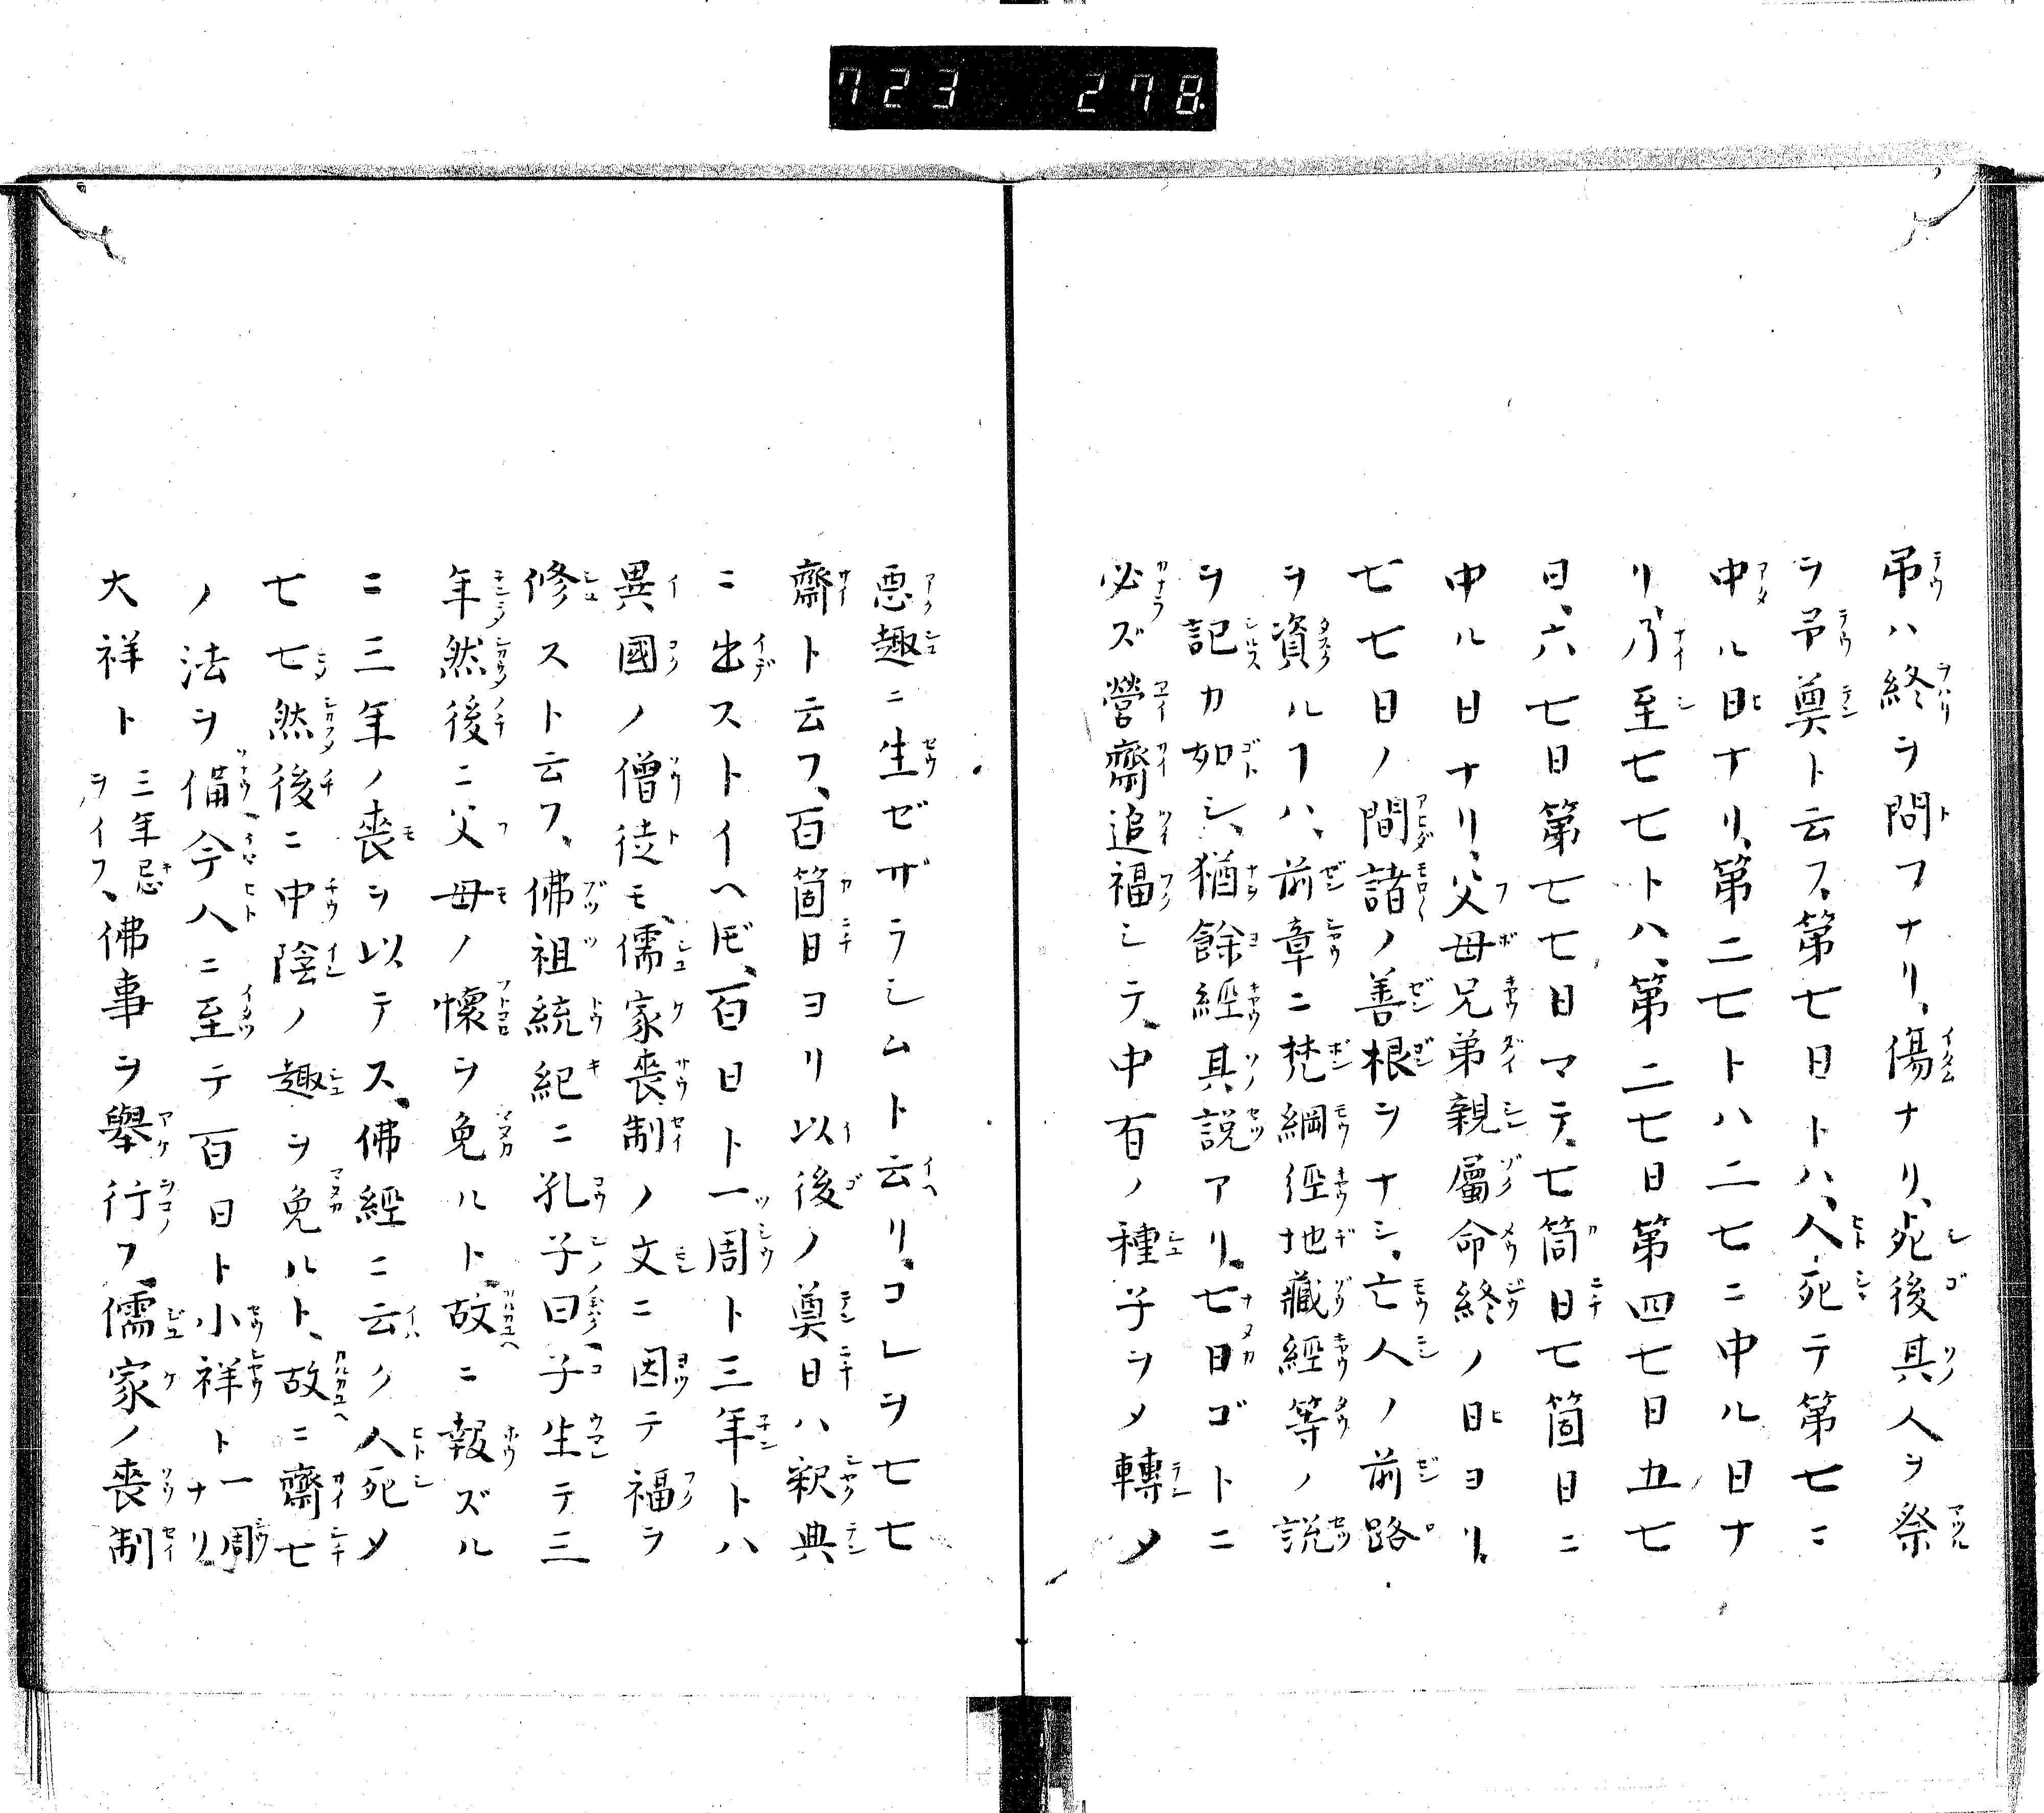 723 278
吊ハ終ヲ問フナリ、傷ナリ、死後其人ヲ祭
ヲ弔奠ト云フ、第七日トハ、人死テ第七ニ
中ル日ナリ、第二七トハ二七ニ中ル日ナ
リ、乃至七七トハ、第二七日第四七日五七
日、六七日第七七日マテ、七箇日七箇日ニ
中ル日ナリ、父母兄弟親屬命終ノ日ヨリ、
七七日ノ間諸ノ善根ヲナシ、亡人ノ前路
ヲ資ルヿハ、前章ニ梵綱經地藏經等ノ説
ヲ記カ如シ、猶餘經其説アリ、七日ゴトニ
必ズ營齋追福シテ、中有ノ種子ヲメ轉メ
惡趣ニ生ゼザラシムト云リ、コレヲ七七
齋ト云フ、百箇日ヨリ以後ノ奠日ハ釈典
ニ出ストイヘ𪜈、百日ト一周ト三年トハ
異國ノ僧徒モ、儒家喪制ノ文ニ因テ福ヲ
修スト云フ、佛祖統紀ニ孔子曰子生テ三
年然後ニ父母ノ懷ヲ免ルト、故ニ報ズル
ニ三年ノ喪ヲ以テス、佛經ニ云ク人死メ
七七然後ニ中陰ノ趣ヲ免ルト、故ニ齋七
ノ法ヲ備、今人ニ至テ百日ト小祥ト一周ナリ、
大祥ト三年忌ヲイフ、佛事ヲ擧行フ、儒家ノ喪制